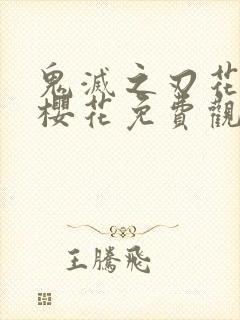 鬼滅之刃花
櫻花免費觀
王騰飛